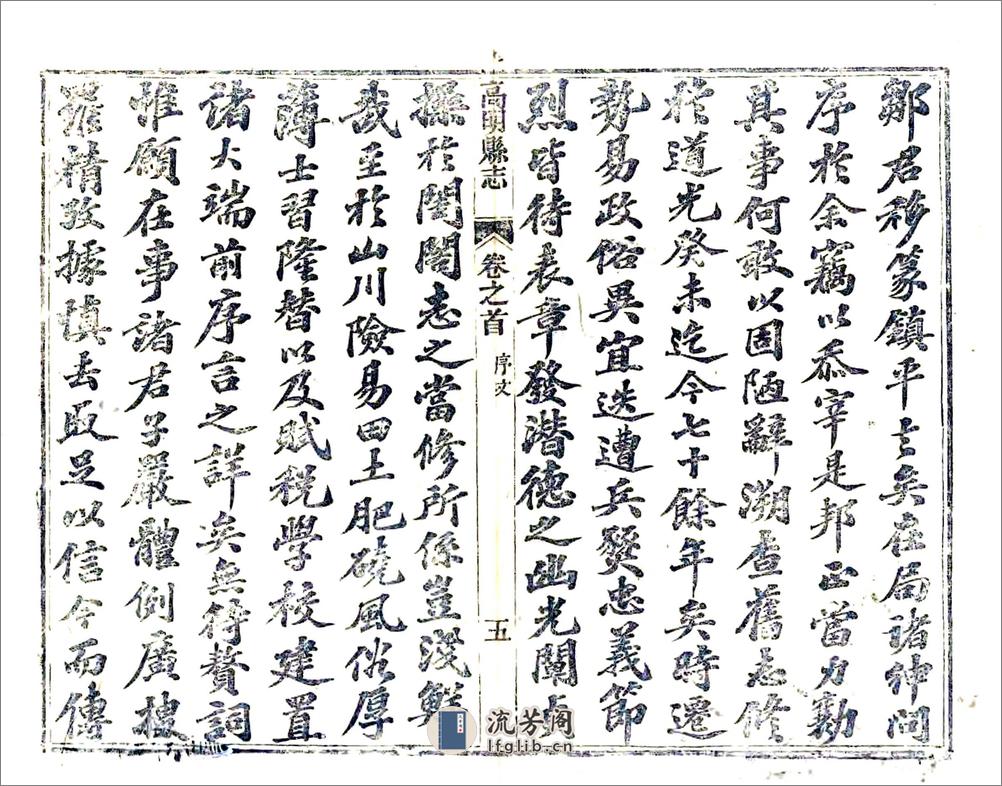 鄒君移篆鎮平去矣在局諸紳問
序於余竊以忝宰是邦正當力勷
其事何敢以固陋辭溯查舊志修
於道光癸未迄今七十餘年矣時遷
勢易政俗異宜迭遭兵燹忠義節
烈皆待表章發潛德之幽光闡
高明縣志 卷之首 序文 五
操於閨閣志之當修所係豈淺鮮
哉至於山川險易田土肥磽風俗厚
薄士習隆替以及賦稅學校建置
諸大端前序言之詳矣無待贅詞
惟願在事諸君子嚴體例廣搜
羅精攷據慎去取足以信今而傳
流芳阁
lfglib.cn